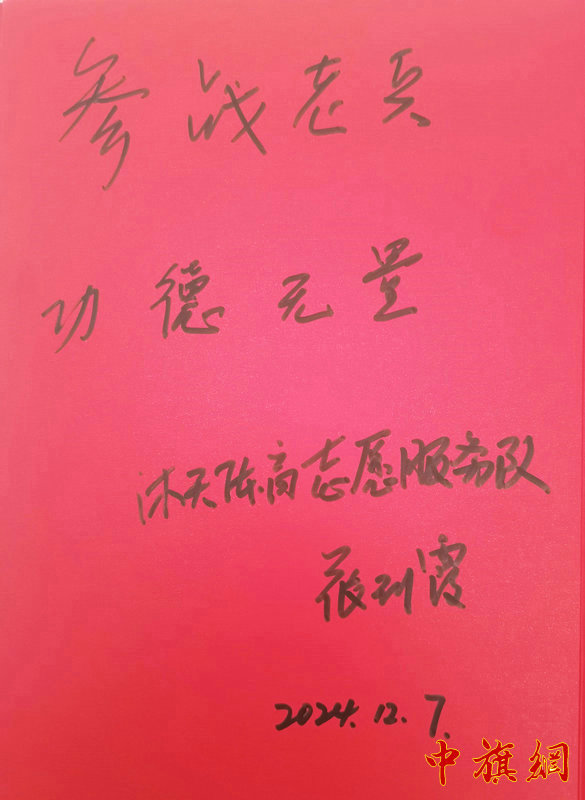 参战老兵
功德无量
沐天陈高志愿服务队
霞
2024.12.7.
中旗網